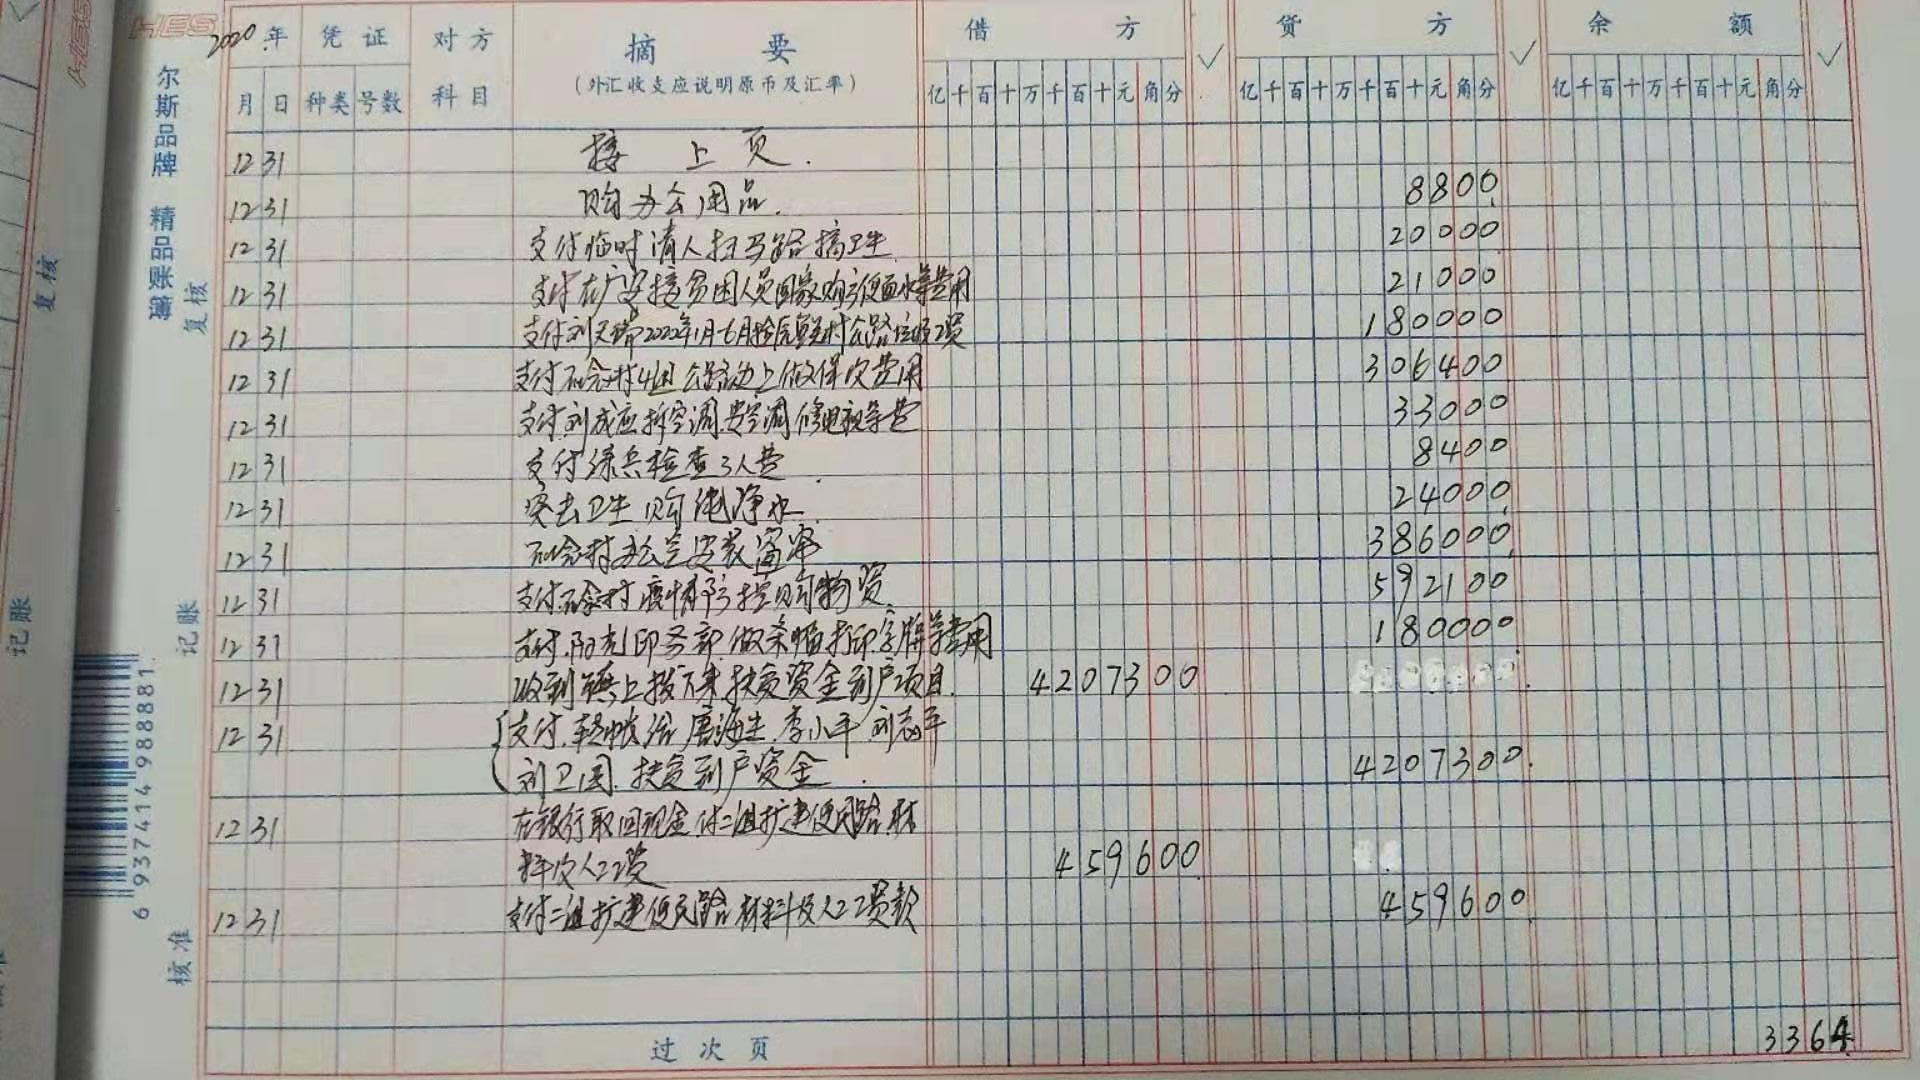 HES
2020年 凭证 对方 摘要 借方 贷方 余额
(外汇收支应说明原币及汇率)
月 日 种类 号数 科目 亿千百十万千百十元角分 亿千百十万千百十元角分 亿千百十万千百十元角分
12 31 接上页.
12 31 购办公用品. 8800
12 31 支付临时请人扫马路搞卫生 20000
12 31 支付在广安接贫困人员回家购方便面水等费用 21000
12 31 支付刘天 2020年1月-6月 村公路垃圾工资 180000
12 31 支付石 村4组公路边上做保坎费用 306400
12 31 支付刘成应拆空调安空调修电 等费 33000
12 31 支付 兵检查3人费 8400
12 31 卫生购纯净水 24000
12 31 石 村办公室安装窗帘 386000
12 31 支付石 村疫情防控购物资 592100
12 31 支付.阳光印务部做条幅打印字牌等费用 180000
12 31 收到 上拨下来扶贫资金到户项目. 4207300
12 31 支付.转帐给唐海生.李小平 刘志平
刘卫国.扶贫到户资金. 4207300.
12 31 在银行取回现金付二组扩建便民路材
料及人工工资 459600
12 31 支付二组扩建便民路材料及人工工资款 459600
过次页 3364
尔斯品牌 精品账簿
复核
记账
核准
6 937414 988881
复核
记账